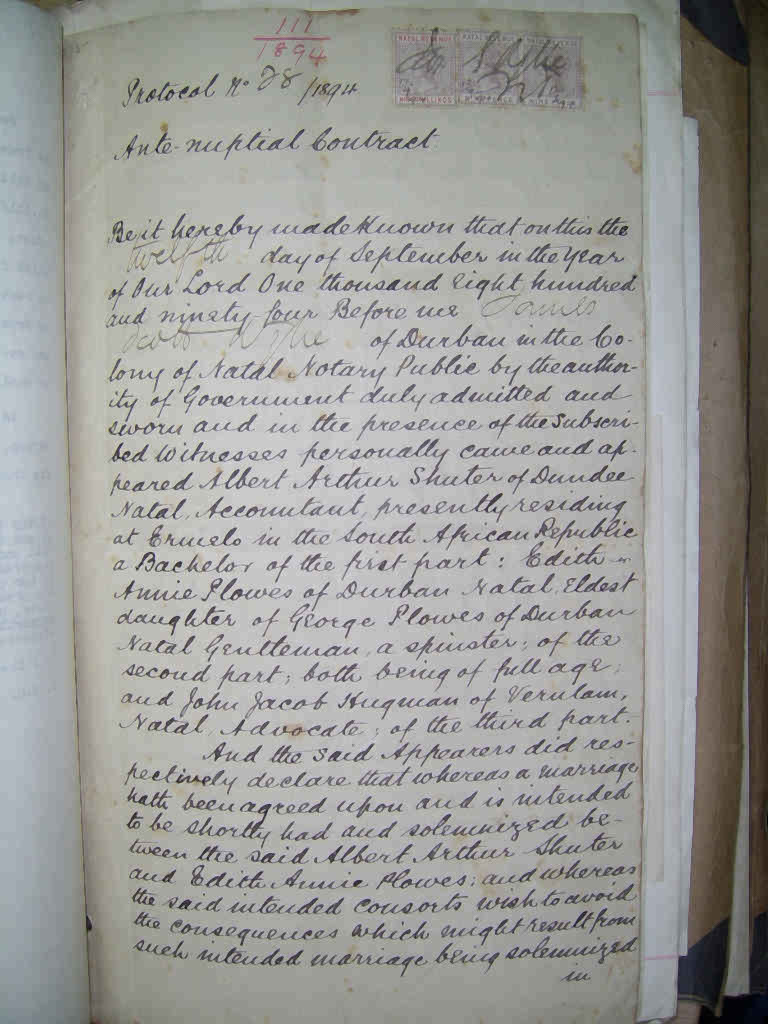 111
1894
NATAL REVENUE NATAL REVENUE
Protocol No 28 /1894
Ante-nuptial Contract
Be it hereby made Known that on this the
twelfth day of September in the Year
of Our Lord One thousand Eight hundred
and ninety-four Before me James
Scott Wylie of Durban in the Co-
lony of Natal Notary Public by the author-
ity of Government duly admitted and
sworn and in the presence of the Subscri-
bed Witnesses personally came and ap-
peared Albert Arthur Shuter of Dundee
Natal, Accountant, presently residing
at Ermelo in the South African Republic
a Bachelor of the first part: Edith
Annie Plowes of Durban Natal, Eldest
daughter of George Plowes of Durban
Natal Gentleman, a spinster; of the
second part; both being of full age;
and John Jacob Hugman of Verulam,
Natal, Advocate; of the third part.
And the said Appearers did res-
pectively declare that whereas a marriage
hath been agreed upon and is intended
to be shortly had and solemnized be-
tween the said Albert Arthur Shuter
and Edith Annie Plowes; and whereas
the said intended consorts wish to avoid
the consequences which might result from
such intended marriage being solemnized
in